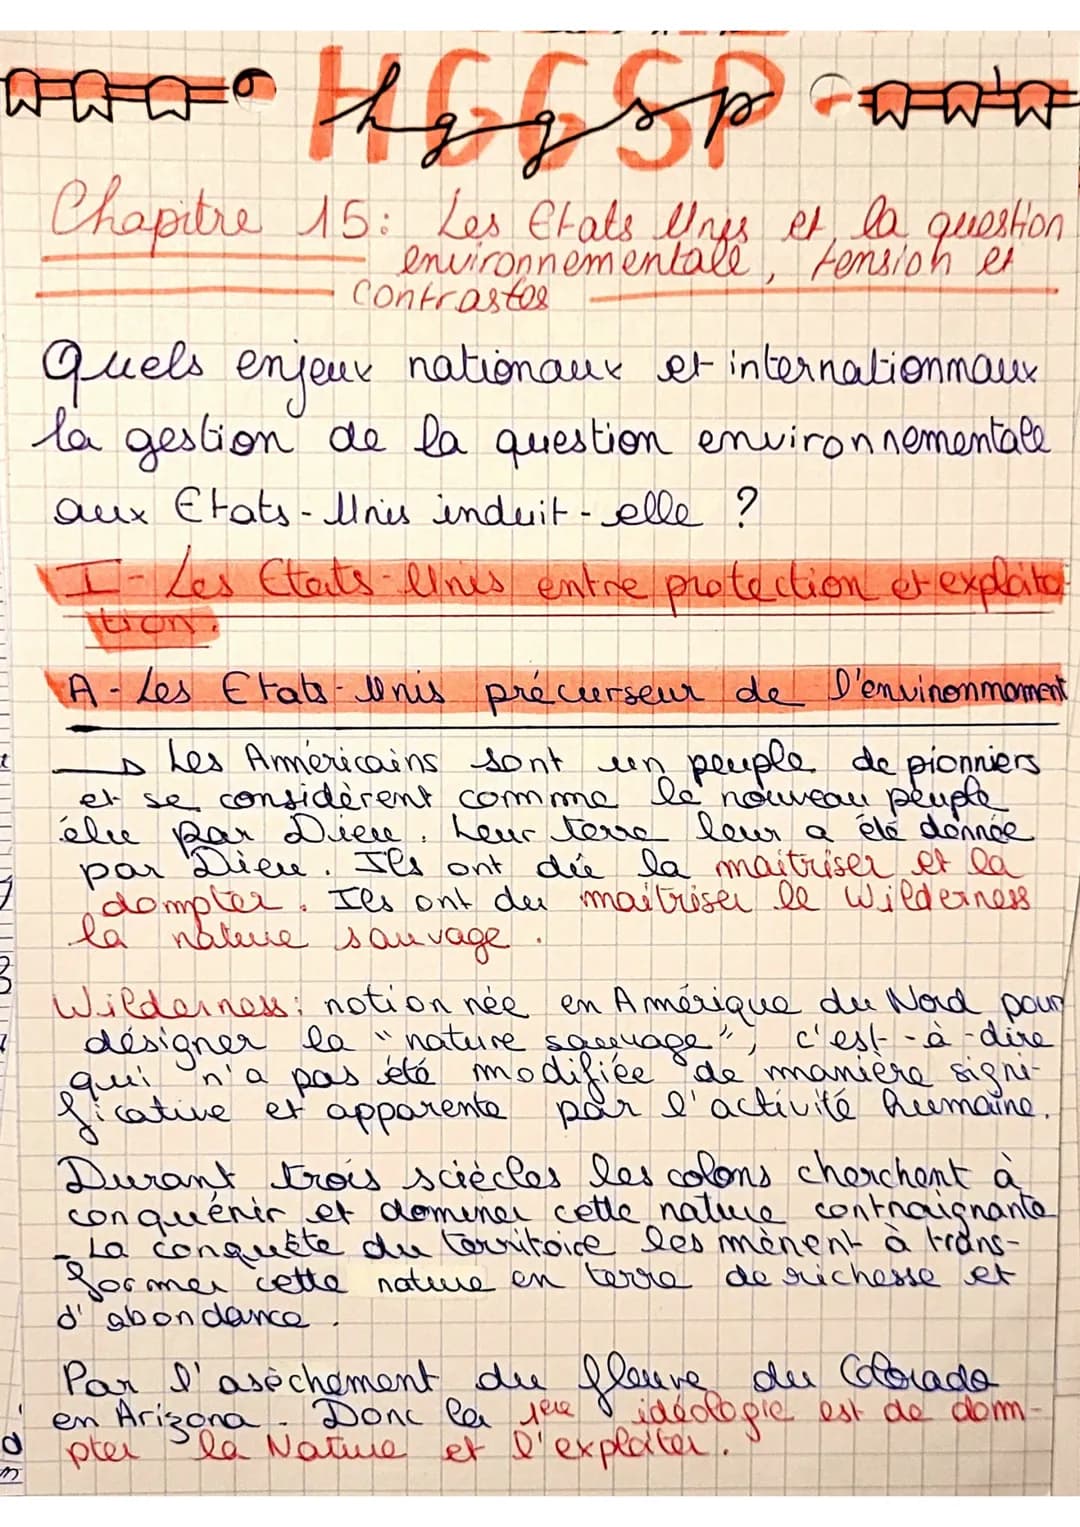 HGGSP
hggsp
Chapitre 15: Les Etats Unis et la question
environnementale, tension et
contrastes
Quels enjeux nationaux et internationnaux
la gestion de la question environnementale
aux Etats-Unis induit-elle ?
I- Les Etats-Unis entre protection et exploita-
tion.
A- Les Etats-Unis précurseur de l'environnmoment
Les Américains sont un peuple de pionniers
et se considèrent comme le nouveau peuple
élu par Dieu. Leur terre leur a été donnée
par Dieu. Ils ont dû la maitriser et la
dompter. Ils ont du maitriser le Wilderness
la nature sauvage.
Wilderness: notion née en Amérique du Nord pour
désigner la "nature sauvage", c'est-à-dire
qui n'a pas été modifiée de manière signi-
ficative et apparente par l'activité humaine.
Durant trois sciècles les colons cherchent à
conquérir et dominer cette nature contraignante
- La conquête du territoire les mènent à trans-
former cette nature en terre de richesse et
d'abondance.
Par l'asèchement du fleuve du Colorado
en Arizona. Donc la 1ère idéologie est de dom-
pter la Nature et l'exploiter.